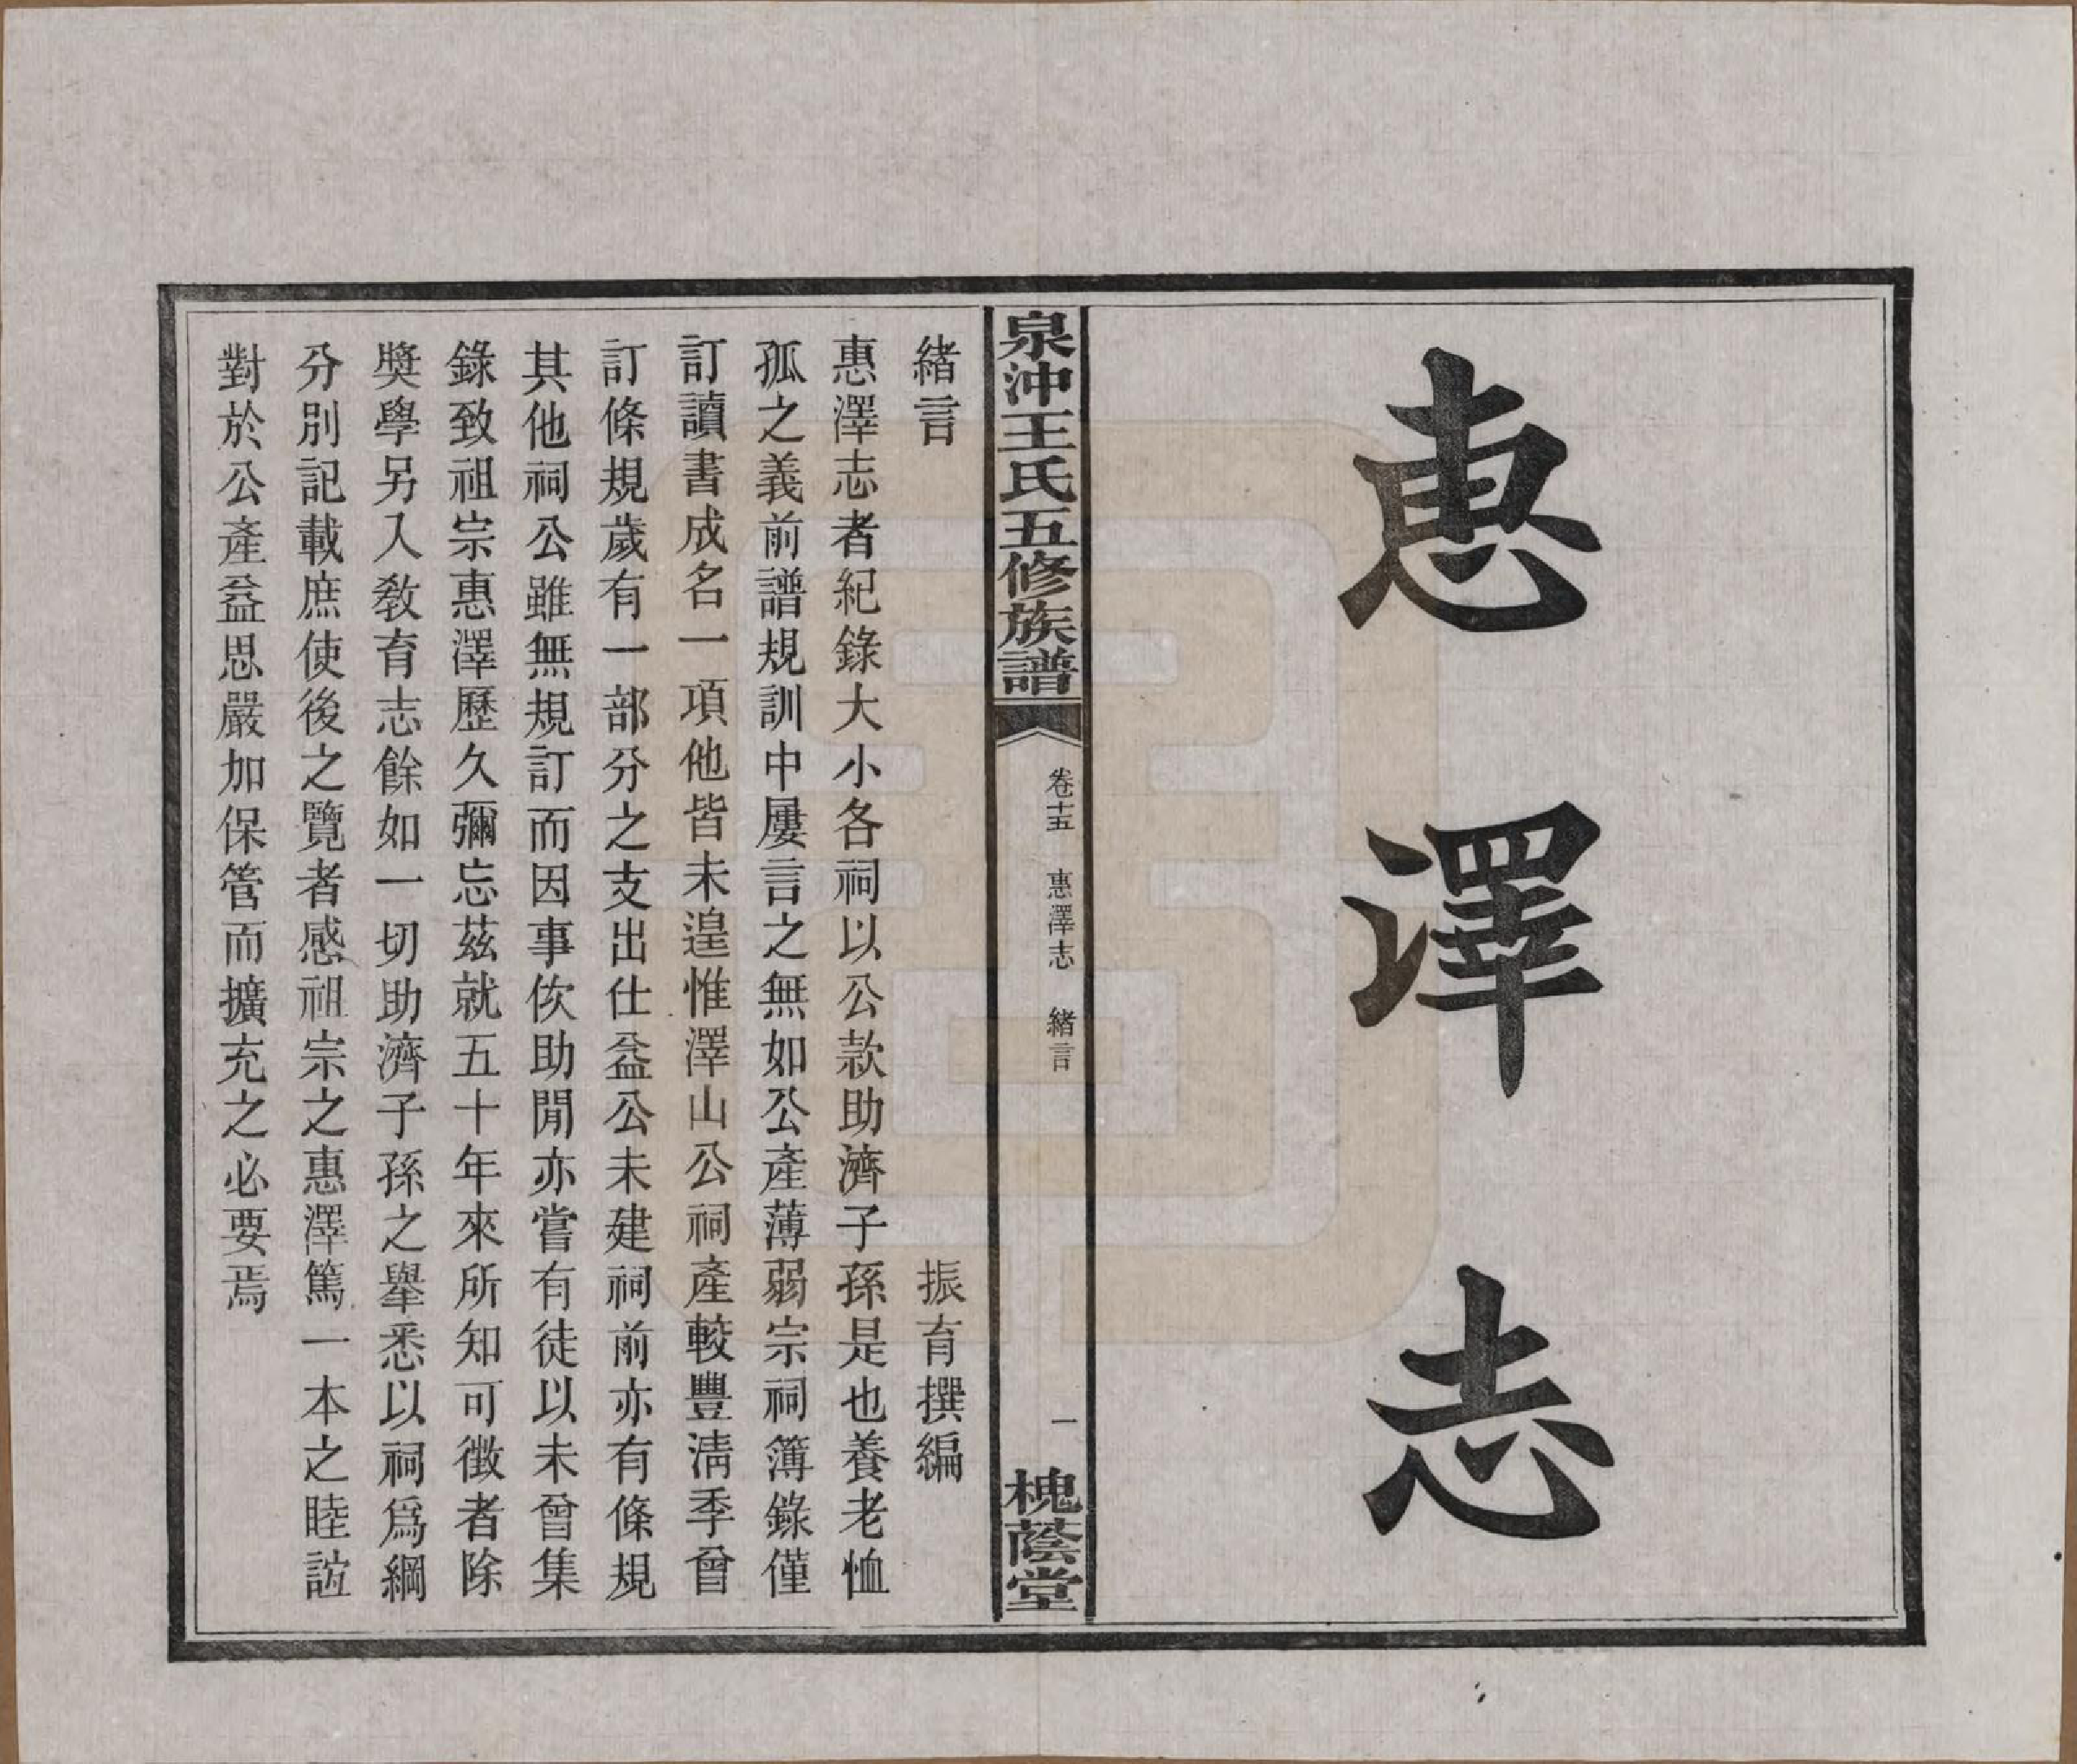 惠澤志
泉沖王氏五修族譜
卷十五 惠澤志 緒言
一
槐蔭堂
緒言 振育撰編
惠澤志者紀錄大小各祠以公款助濟子孫是也養老恤
孤之義前譜規訓中屢言之無如公產薄弱宗祠簿錄僅
訂讀書成名一項他皆未遑惟澤山公祠產較豐淸季曾
訂條規歲有一部分之支出仕益公未建祠前亦有條規
其他祠公雖無規訂而因事佽助閒亦嘗有徒以未曾集
錄致祖宗惠澤歷久彌忘茲就五十年來所知可徵者除
奬學另入敎育志餘如一切助濟子孫之舉悉以祠爲綱
分別記載庶使後之覽者感祖宗之惠澤篤一本之睦誼
對於公產益思嚴加保管而擴充之必要焉